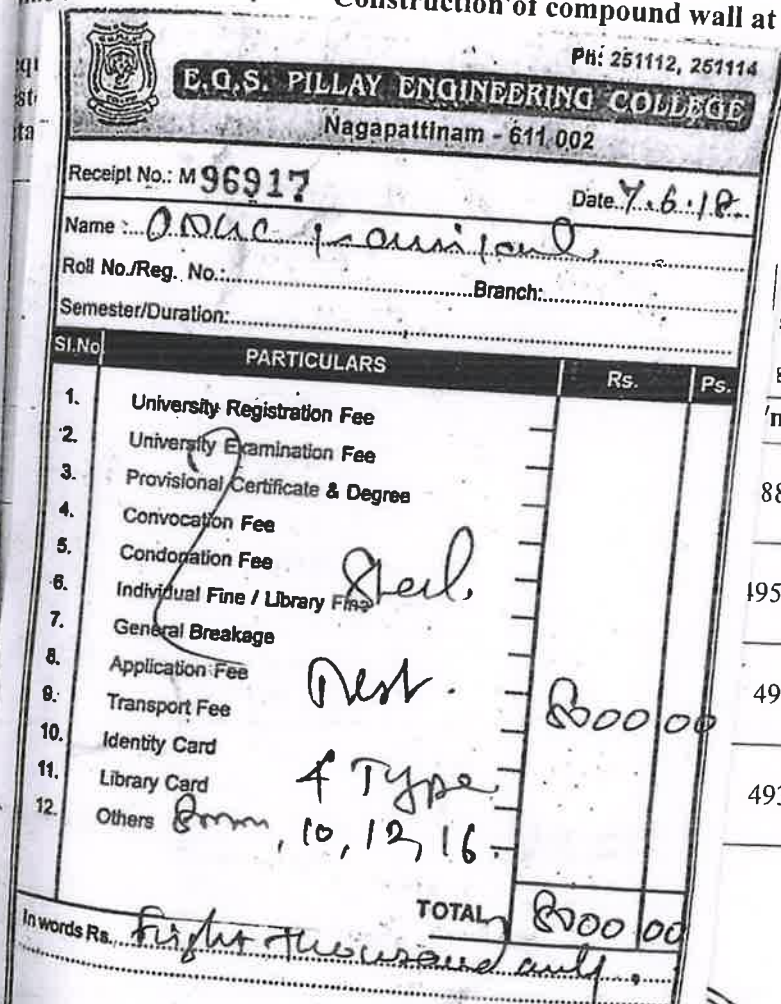 Construction of compound wall at
Ph: 251112, 251114
E.G.S. PILLAY ENGINEERING COLLEGE
Nagapattinam - 611 002
Receipt No.: M 96917
Date 7.6.18.
Name :
Roll No./Reg. No.: Branch:
Semester/Duration:
Sl.No PARTICULARS Rs. Ps.
1. University Registration Fee
2. University Examination Fee
3. Provisional Certificate & Degree
4. Convocation Fee
5. Condonation Fee
6. Individual Fine / Library Fine
Steel,
7. General Breakage
8. Application Fee
Test.
9. Transport Fee 8000 00
10. Identity Card
4 Type
11. Library Card
12. Others 8mm, 10, 12, 16.
TOTAL 8000 00
In words Rs. Eight thousand only.
88
495
49
493